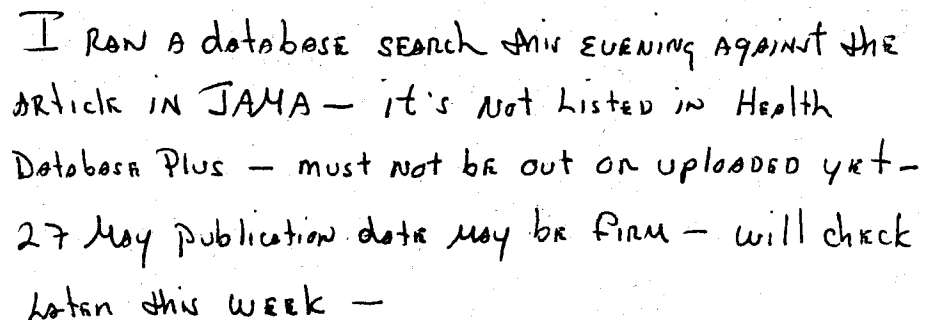 I ran a database search this evening against the
article in JAMA — it's not listed in Health
Database Plus — must not be out or uploaded yet —
27 May publication date may be firm — will check
later this week —